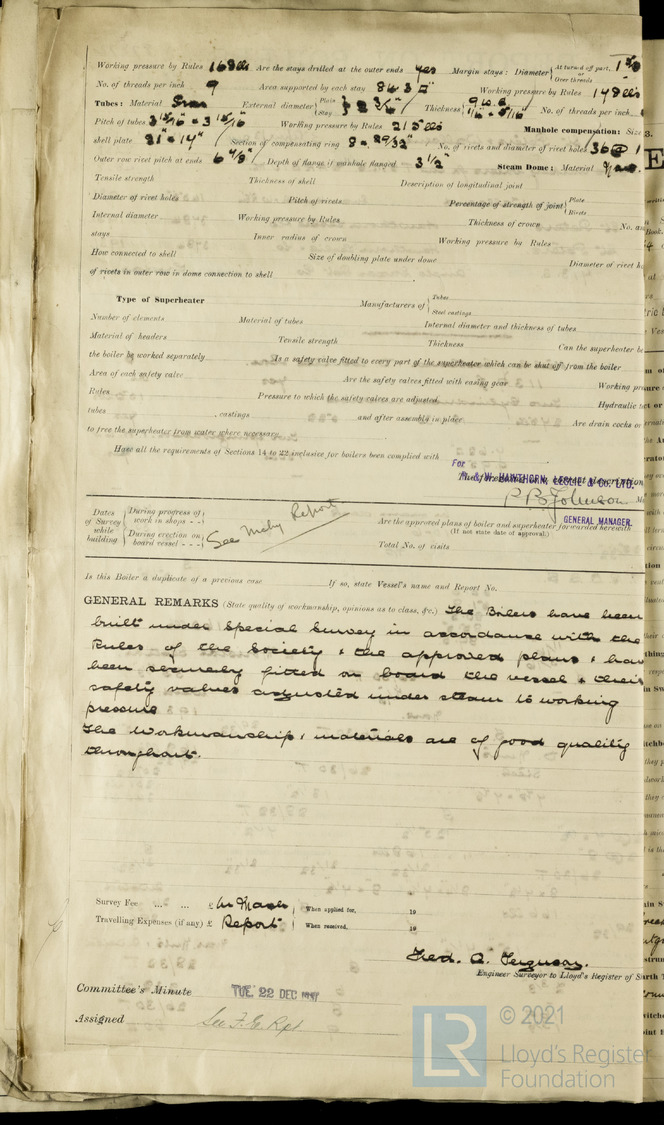 Working pressure by Rules 168 lbs Are the stays drilled at the outer ends yes Margin stays: Diameter { At turned off part, or Over threads
No. of threads per inch 9 Area supported by each stay Working pressure by Rules 148 lbs
Tubes: Material Iron External diameter { Plain Stay Thickness No. of threads per inch
Pitch of tubes 3 15/16" × 3 15/16" Working pressure by Rules 215 lbs Manhole compensation: Size
shell plate 21" × 14" Section of compensating ring 8 × 29/32" No. of rivets and diameter of rivet holes 36 @ 1
Outer row rivet pitch at ends 6 7/8" Depth of flange if manhole flanged 3 1/2" Steam Dome: Material None
Tensile strength Thickness of shell Description of longitudinal joint
Diameter of rivet holes Pitch of rivets Percentage of strength of joint { Plate Rivets
Internal diameter Working pressure by Rules Thickness of crown No. and
stays Inner radius of crown Working pressure by Rules
How connected to shell Size of doubling plate under dome Diameter of rivet h
of rivets in outer row in dome connection to shell
Type of Superheater Manufacturers of { Tubes Steel castings
Number of elements Material of tubes Internal diameter and thickness of tubes
Material of headers Tensile strength Thickness Can the superheater be
the boiler be worked separately Is a safety valve fitted to every part of the superheater which can be shut off from the boiler
Area of each safety valve Are the safety valves fitted with easing gear Working pressure
Rules Pressure to which the safety valves are adjusted Hydraulic test
tubes , castings and after assembly in place Are drain cocks or
to free the superheater from water where necessary
Have all the requirements of Sections 14 to 22 inclusive for boilers been complied with
For R. & W. HAWTHORN, LESLIE & CO. LTD.
P. B. Johnson
GENERAL MANAGER.
Dates of Survey while building { During progress of work in shops - - } During erection on board vessel - - -
See Mchy Report
Are the approved plans of boiler and superheater forwarded herewith
(If not state date of approval.)
Total No. of visits
Is this Boiler a duplicate of a previous case If so, state Vessel's name and Report No.
GENERAL REMARKS (State quality of workmanship, opinions as to class, &c.) The Boilers have been
built under Special Survey in accordance with the
Rules of the Society & the approved plans & have
been securely fitted on board the vessel & their
safety valves adjusted under steam to working
pressure
The workmanship & materials are of good quality
throughout.
Survey Fee ... ... £ When applied for, 19
Travelling Expenses (if any) £ Report When received, 19
Fred. A. Ferguson.
Engineer Surveyor to Lloyd's Register of S
Committee's Minute TUE. 22 DEC
Assigned See F.E. Rpt
LR © 2021
Lloyd's Register
Foundation